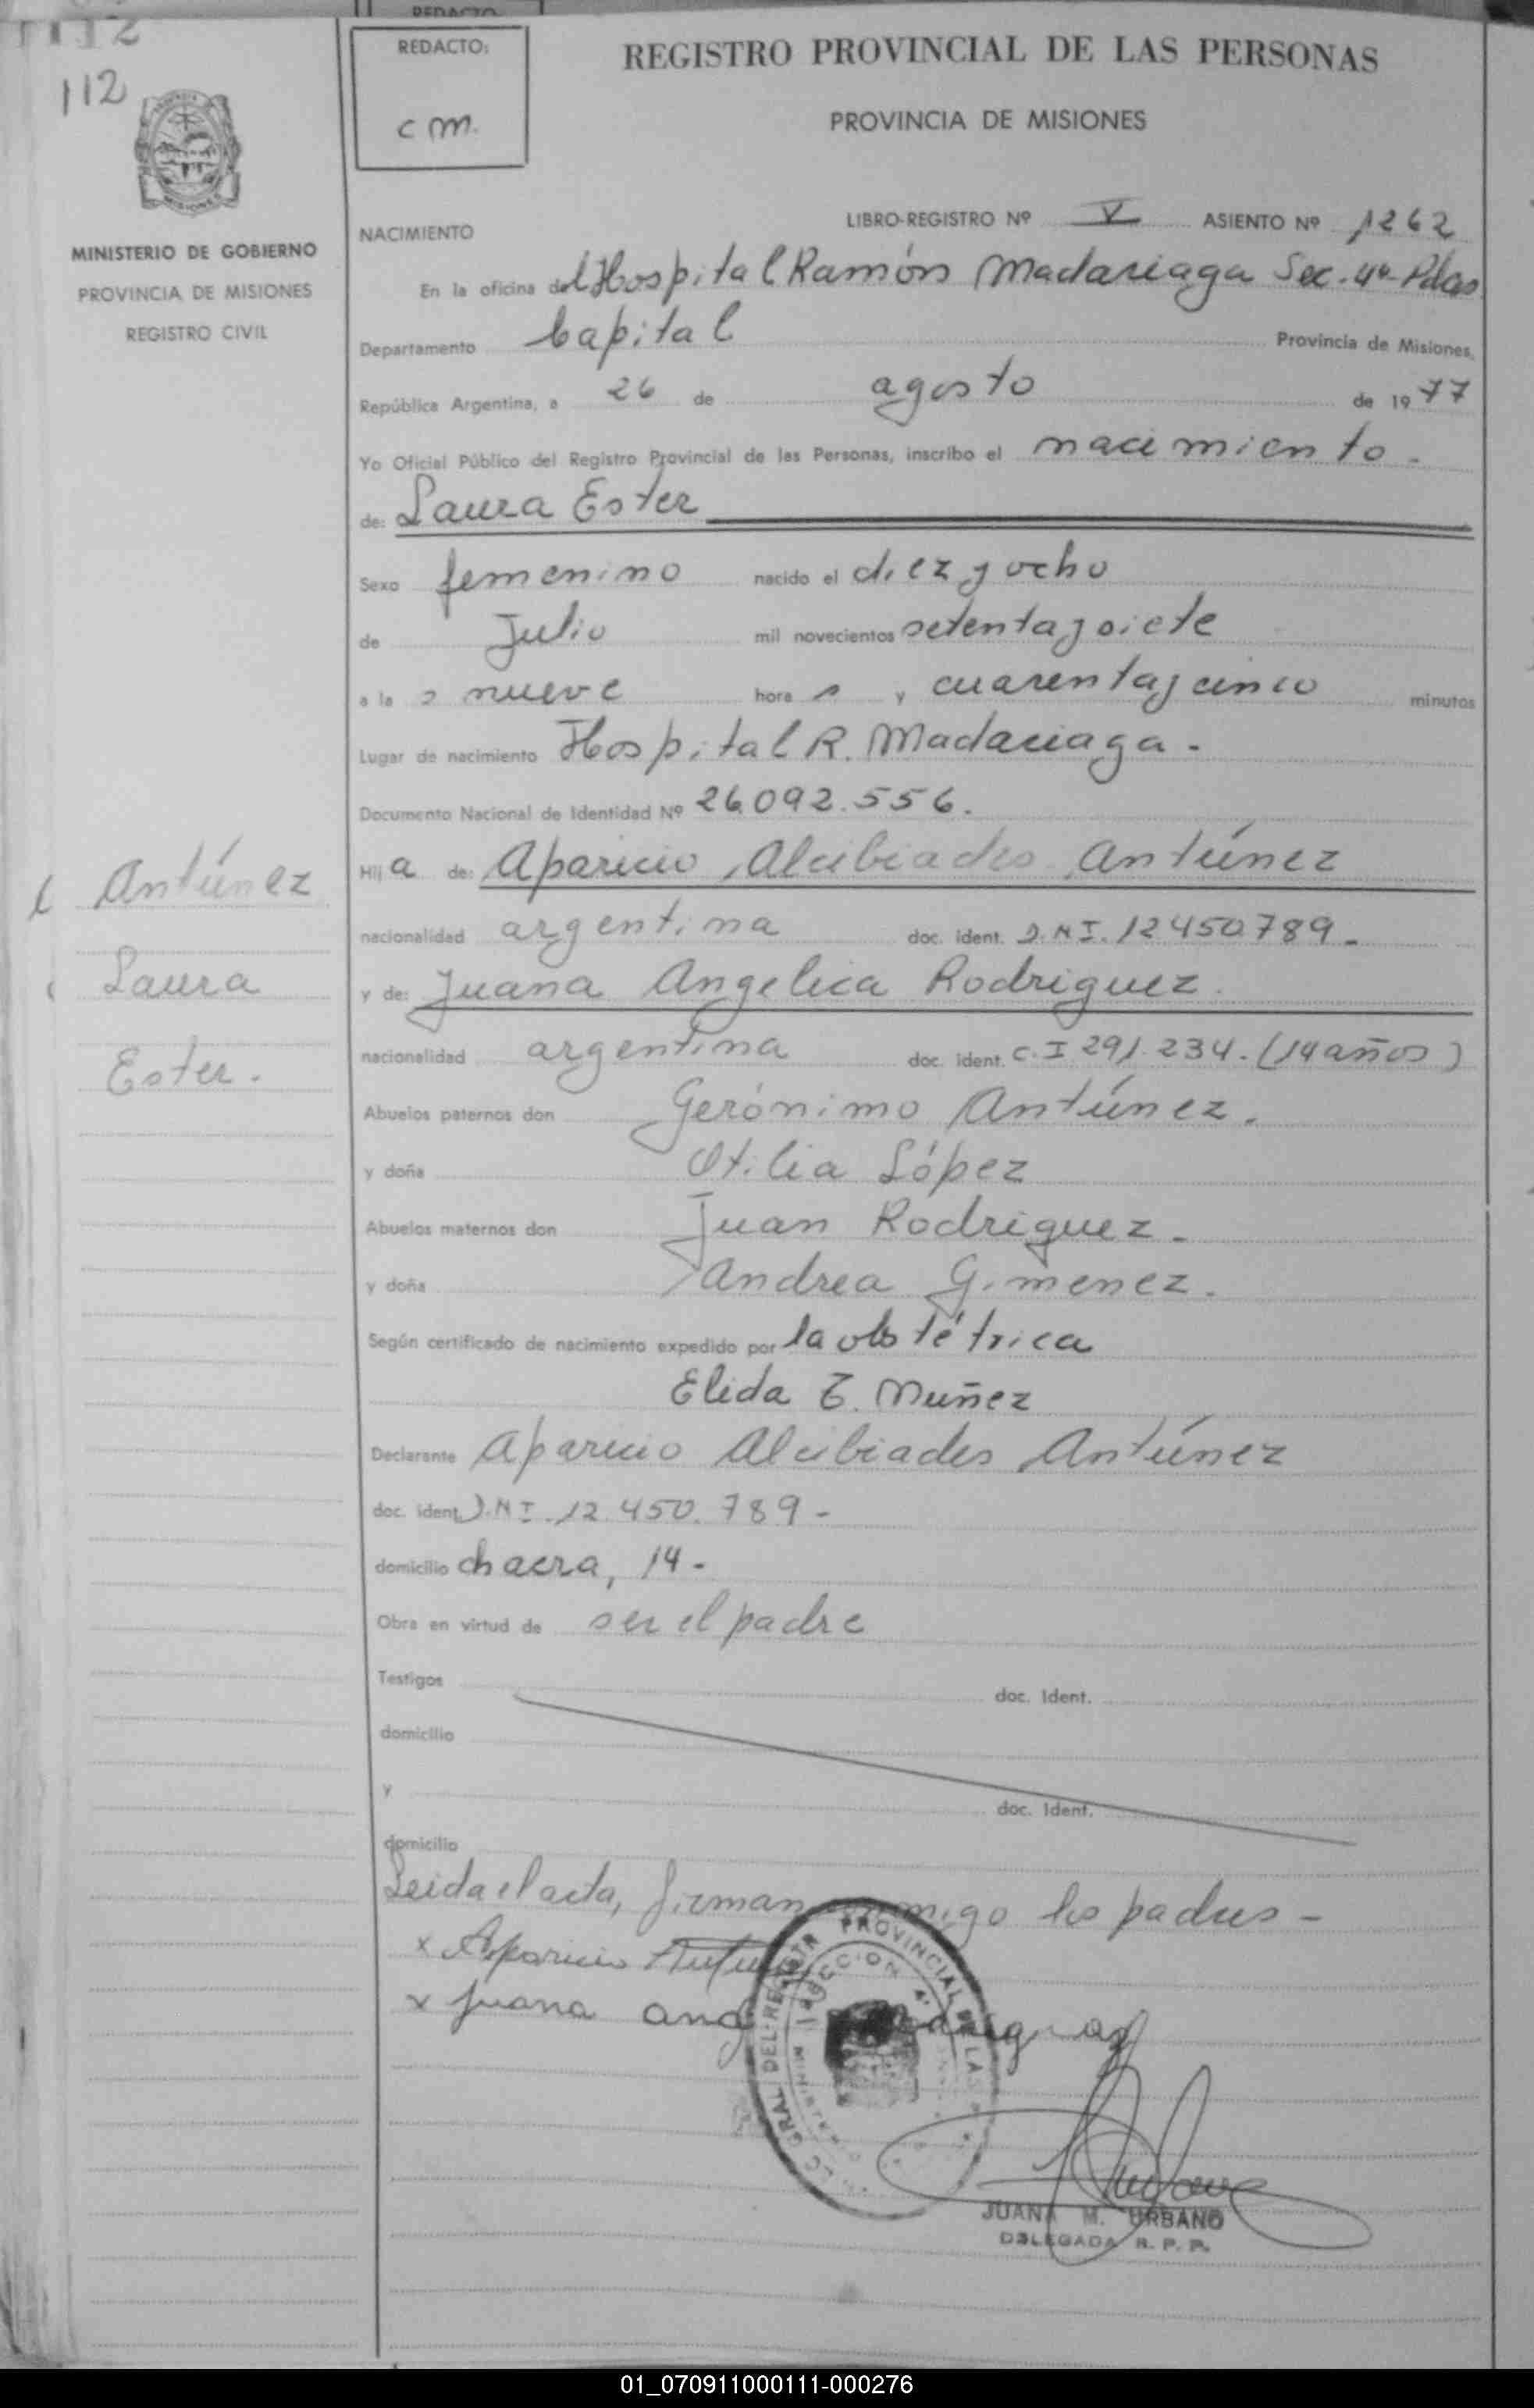 REDACTO:
112
112
REDACTO:
cm.
REGISTRO PROVINCIAL DE LAS PERSONAS
PROVINCIA DE MISIONES
MINISTERIO DE GOBIERNO
PROVINCIA DE MISIONES
REGISTRO CIVIL
NACIMIENTO LIBRO-REGISTRO Nº V ASIENTO Nº 1262
En la oficina del Hospital Ramón Madariaga Sec. 4ª Pdas
Departamento Capital Provincia de Misiones,
República Argentina, a 26 de agosto de 1977
Yo Oficial Público del Registro Provincial de las Personas, inscribo el nacimiento.
de: Laura Ester
Sexo femenino nacido el diez y ocho
de Julio mil novecientos setenta y siete
a las nueve hora s y cuarenta y cinco minutos
Lugar de nacimiento Hospital R. Madariaga.
Documento Nacional de Identidad Nº 26.092.556.
Hija de: Aparicio Alcibiades Antúnez
nacionalidad argentina doc. ident. D.N.I. 12.450.789.
y de: Juana Angelica Rodriguez.
nacionalidad argentina doc. ident. C.I 291.234. (14 años)
Abuelos paternos don Gerónimo Antúnez.
y doña Otilia López
Abuelos maternos don Juan Rodriguez.
y doña Andrea Gimenez.
Según certificado de nacimiento expedido por la obstétrica
Elida E. Muñez
Declarante Aparicio Alcibiades Antúnez
doc. ident. D.N.I. 12.450.789-
domicilio chacra, 14-
Obra en virtud de ser el padre
Testigos doc. Ident.
domicilio
y doc. Ident.
domicilio
Leida el acta, firman conmigo los padres-
x Aparicio Antunez
x Juana Ang Rodriguez
Antúnez
Laura
Ester.
GRAL DEL REGISTR PROVINCIAL DE LAS
SECCION 4ª
JUANA M. URBANO
DELEGADA R. P. P.
01_070911000111-000276